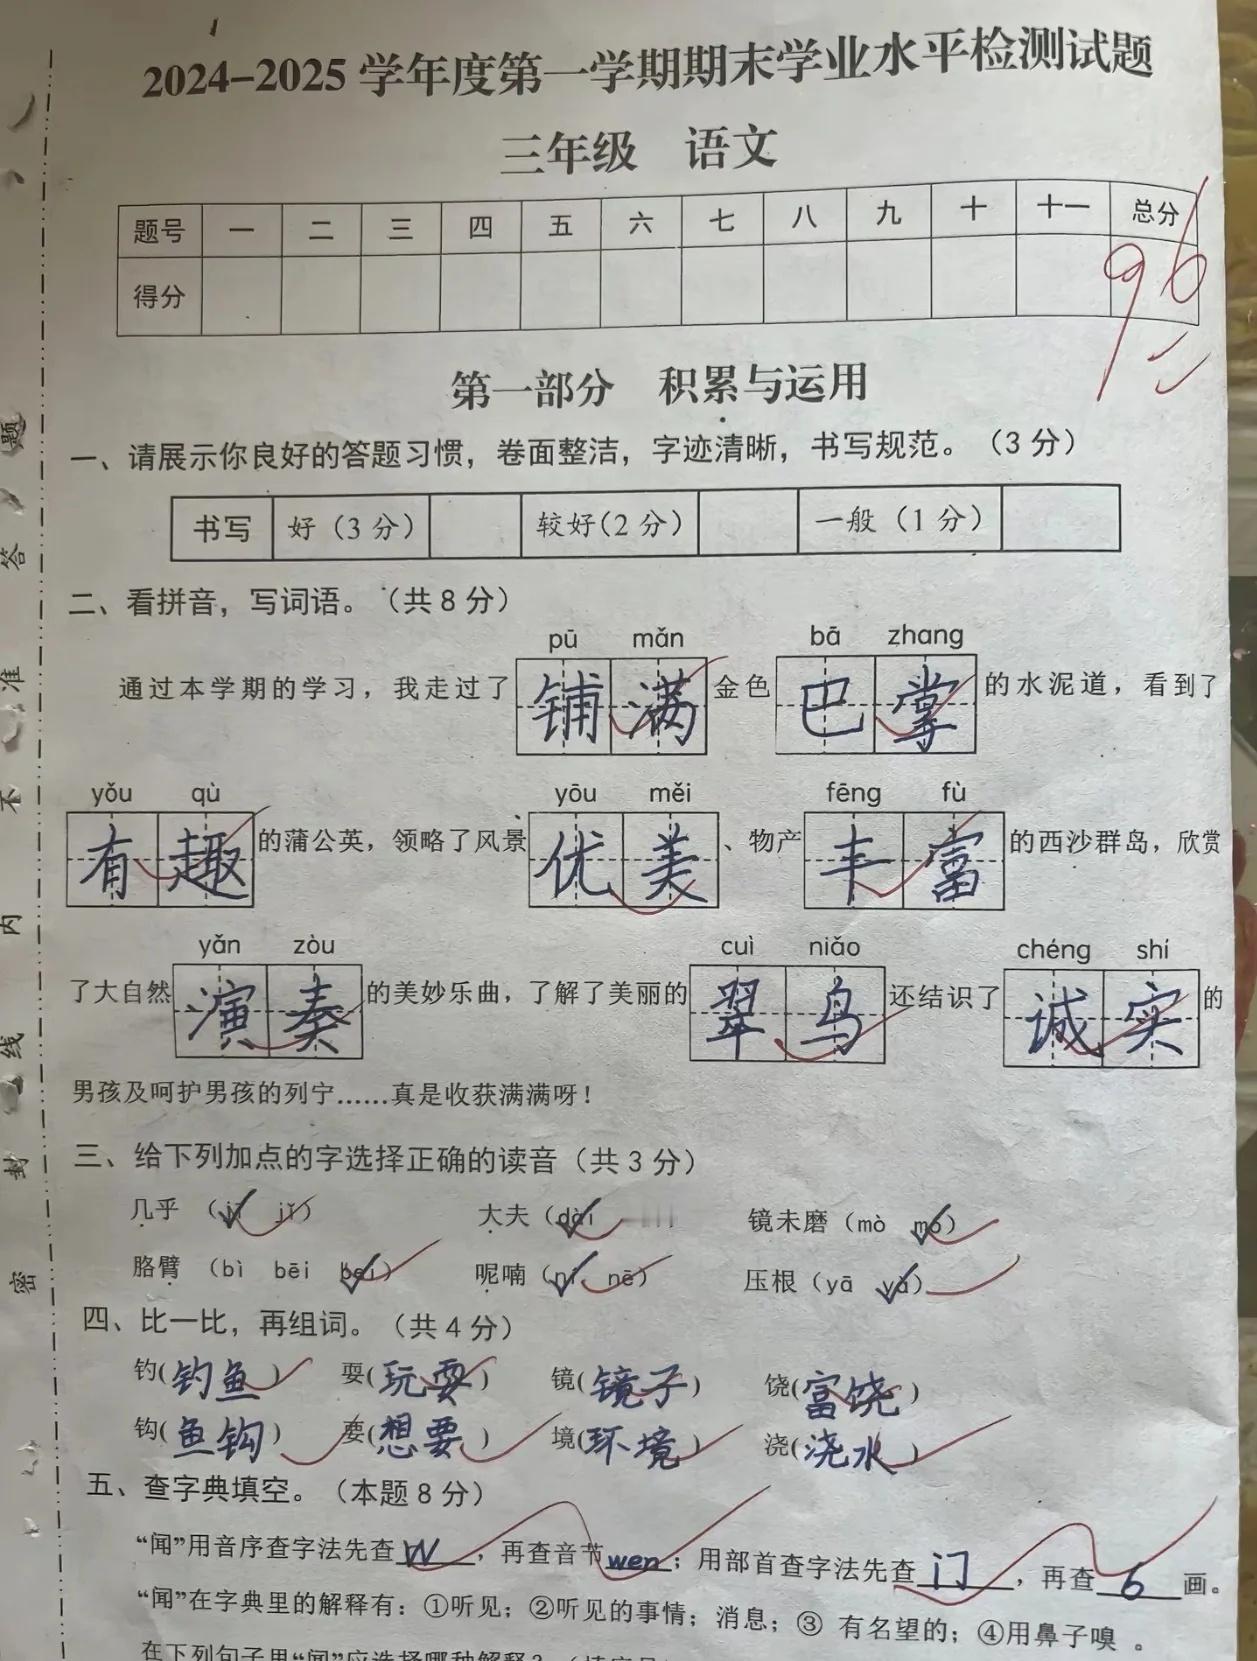 2024-2025 学年度第一学期期末学业水平检测试题
三年级 语文
题号 一 二 三 四 五 六 七 八 九 十 十一 总分
得分 96
第一部分 积累与运用
一、请展示你良好的答题习惯，卷面整洁，字迹清晰，书写规范。（3 分）
书写 好（3 分） 较好（2 分） 一般（1 分）
二、看拼音，写词语。（共 8 分）
pū mǎn bā zhang
通过本学期的学习，我走过了 铺满 金色 巴掌 的水泥道，看到了
yǒu qù yōu měi fēng fù
有趣 的蒲公英，领略了风景 优美 、物产 丰富 的西沙群岛，欣赏
yǎn zòu cuì niǎo chéng shí
了大自然 演奏 的美妙乐曲，了解了美丽的 翠鸟 还结识了 诚实 的
男孩及呵护男孩的列宁……真是收获满满呀！
三、给下列加点的字选择正确的读音（共 3 分）
几乎 （jī jǐ） 大夫（dài 镜未磨（mò mó）
胳臂 （bì bēi bei） 呢喃（ní nē） 压根（yā yà）
四、比一比，再组词。（共 4 分）
钓(钓鱼) 耍(玩耍) 镜(镜子) 饶(富饶)
钩(鱼钩) 要(想要) 境(环境) 浇(浇水)
五、查字典填空。（本题 8 分）
“闻”用音序查字法先查 W ，再查音节 wen ；用部首查字法先查 门 ，再查 6 画。
“闻”在字典里的解释有：①听见；②听见的事情；消息；③ 有名望的；④用鼻子嗅 。
密 封 线 内 不 准 答 题